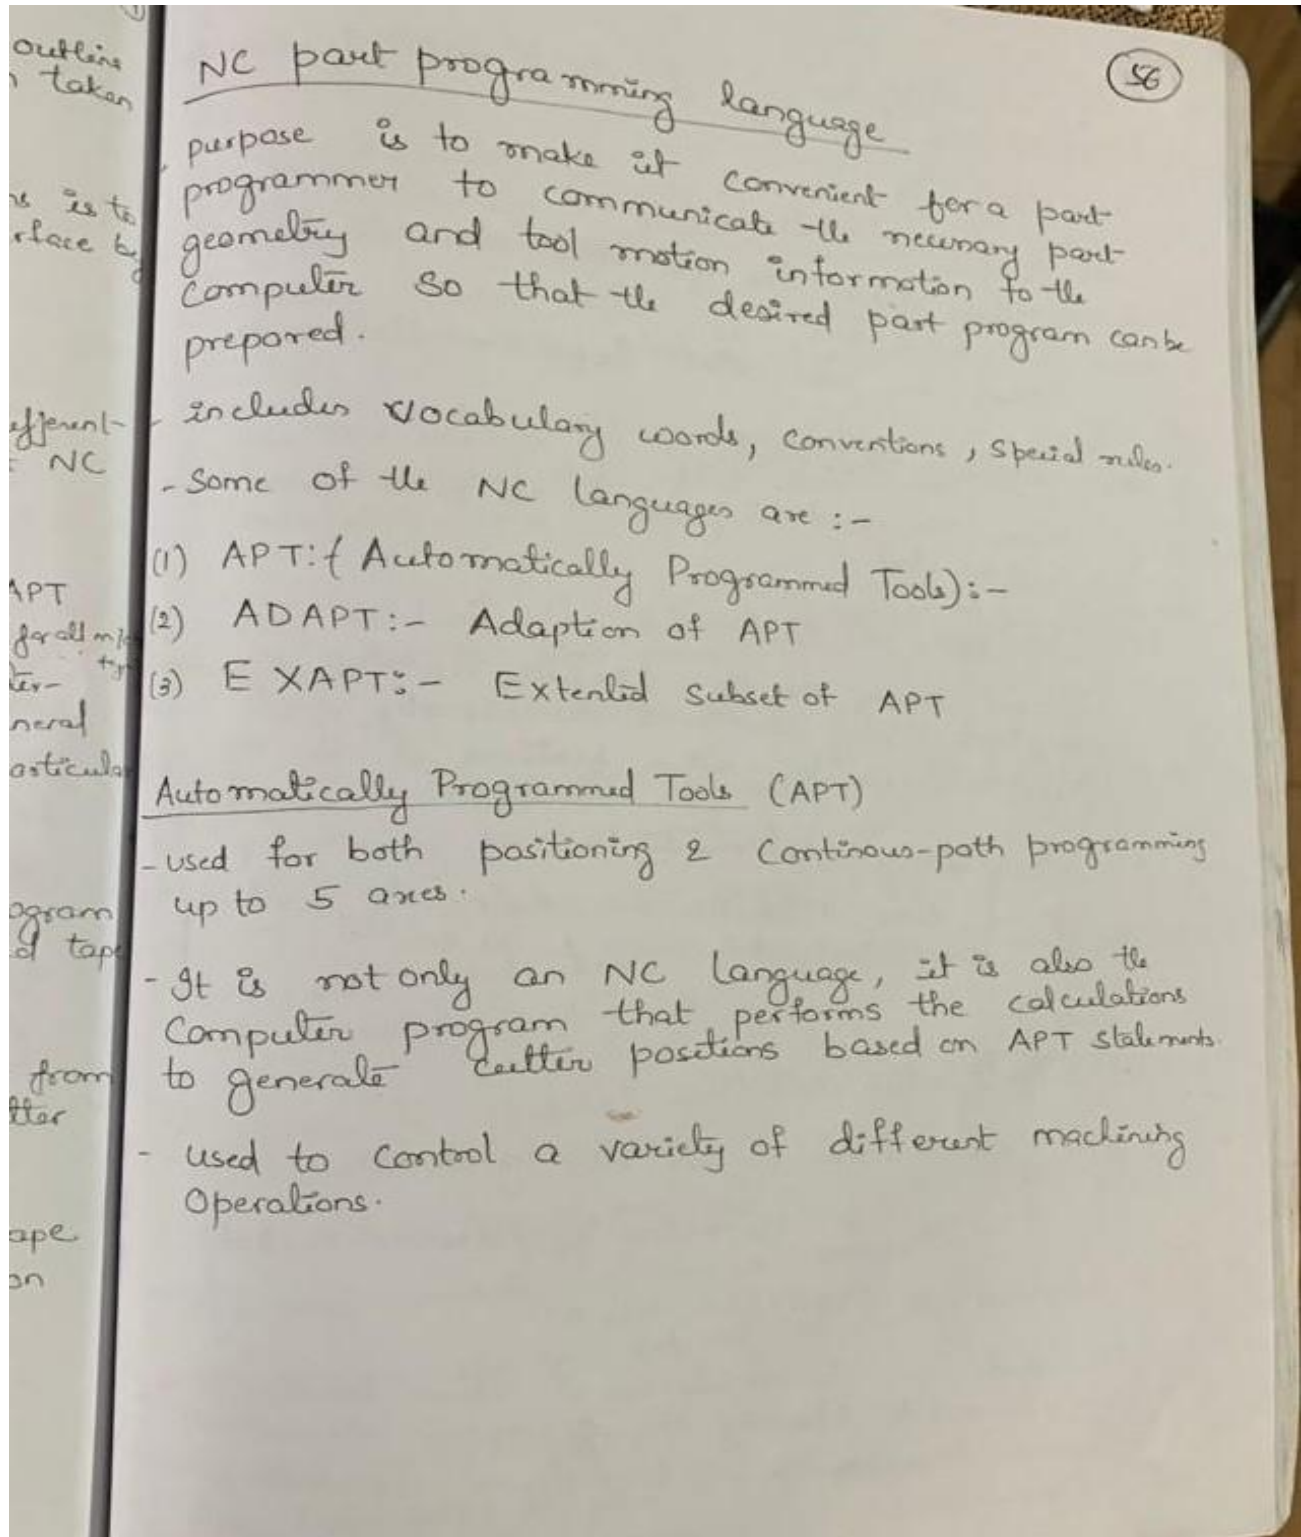 outline
taken
is to
rface by
NC
APT
for all m/c
neral
articular
ogram
tape
from
tter
ape
on
56
NC part programming language
purpose is to make it convenient for a part
programmer to communicate the necessary part
geometry and tool motion information to the
computer so that the desired part program can be
prepared.
- includes vocabulary words, conventions, special rules.
- Some of the NC languages are :-
(1) APT:- (Automatically Programmed Tools):-
(2) ADAPT:- Adaption of APT
(3) EXAPT:- Extented Subset of APT
Automatically Programmed Tools (APT)
- used for both positioning & Continous-path programming
up to 5 axes.
- It is not only an NC language, it is also the
Computer program that performs the calculations
to generate cutter positions based on APT statements.
- used to control a variety of different machining
Operations.